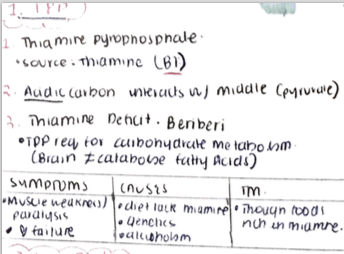 1. TPP
1. Thiamine Pyrophosphate.
• source: thiamine (B1)
2. Acidic carbon interacts w/ middle (pyruvate)
3. Thiamine Deficit. Beriberi
• TPP req for carbohydrate metabolism.
(Brain ≠ catabolise fatty Acids)
symptoms causes TM.
• Muscle weakness/ • diet lack thiamine • Though foods
paralysis • Genetics rich in thiamine.
• failure • alcoholism